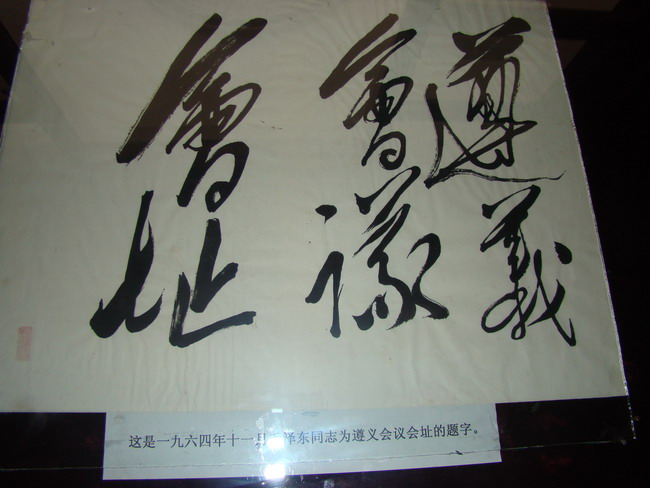 遵义
會議
會址
这是一九六四年十一月 泽东同志为遵义会议会址的题字。